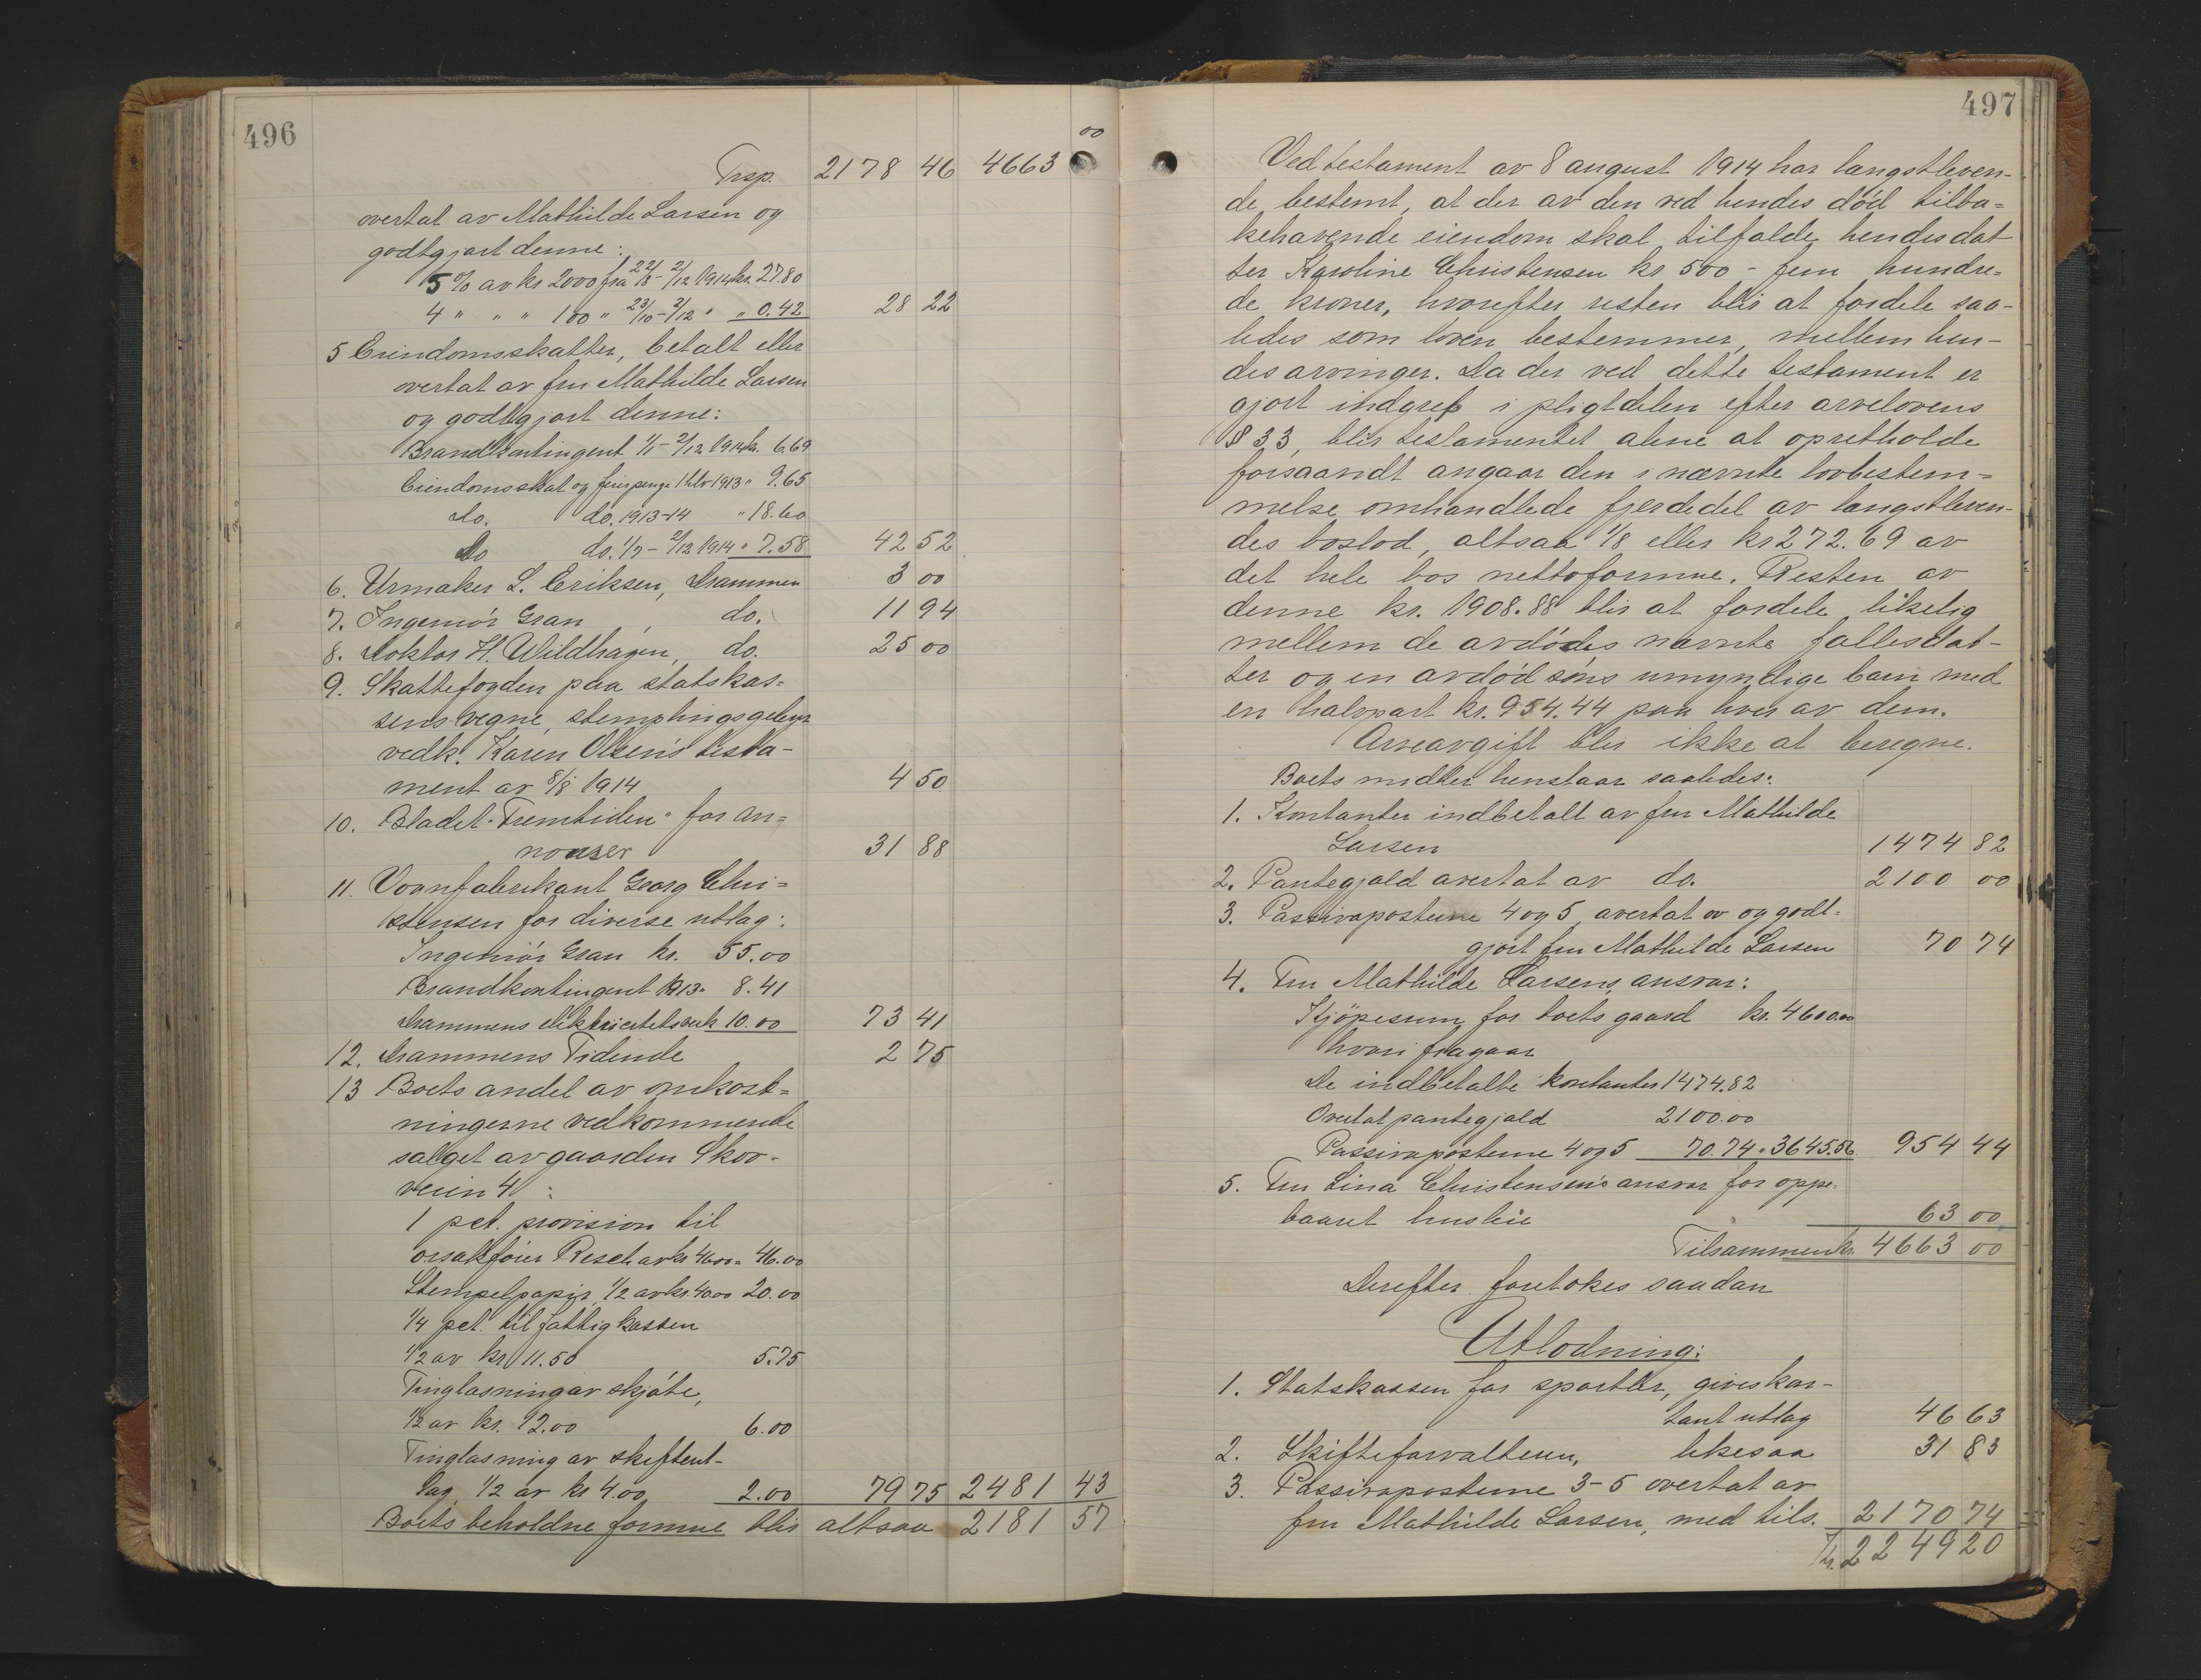 496
Trsp. 2178 46 4663 00
overtat av Mathilde Larsen og
godtgjort denne:
5 % av kr 2000 fra 22/8 - 2/12 1914 kr. 27.80
4 " " " 100 " 23/10 - 2/12 " " 0.42 28 22
5 Eiendomsskatter, betalt eller
overtat av fru Mathilde Larsen
og godtgjort denne:
Brandkontingent 1/1 - 2/12 1914 kr. 6.69
Eiendomsskat og feierpenge 1 hlv 1913 " 9.65
Do. do. 1913-14 " 18.60
Do do. 1/7 - 2/12 1914 " 7.58 42 52
6. Urmaker L. Eriksen, Drammen 3 00
7. Ingeniör Gran , do. 11 94
8. Doktor H. Wildhagen, do. 25 00
9. Skattefogden paa statskas=
sens vegne, stemplingsgebyr
vedk. Karen Olsen's testa-
ment av 8/8 1914 4 50
10. Bladet "Fremtiden" for an=
nonser 31 88
11. Vognfabrikant Georg Chri=
stensen for diverse utlag:
Ingeniör Gran kr. 55.00
Brandkontingent 1913 " 8.41
Drammens elektricitetsverk 10.00 73 41
12. Drammens Tidende 2 75
13 Boets andel av omkost=
ningerne vedkommende
salget av gaarden Skov-
veien 4 :
1 pct. provision til
o.r.sakförer Resch av kr 4600 = 46.00
Stempelpapir, 1/2 av kr. 40.00 20.00
1/4 pct. til fattigkassen
1/2 av kr 11.50 5.75
Tinglæsning av skjöte,
1/2 av kr. 12.00 6.00
Tinglæsning av skifteut-
lag 1/2 av kr 4.00 2.00 79 75 2481 43
Boets beholdne formue blir altsaa 2181 57
497
Ved testament av 8 august 1914 har længstleven-
de bestemt, at der av den ved hendes död tilba=
kehavende eiendom skal tilfalde hendes dat
ter Karoline Christensen kr 500 - fem hundre=
de kroner, hvorefter resten blir at fordele saa-
ledes som loven bestemmer, mellem hen-
des arvinger. Da der ved dette testament er
gjort indgreb i pligtdelen efter arvelovens
§ 33, blir testamentet alene at opretholde
forsaavidt angaar den i nævnte lovbestem=
melse omhandlede fjerdedel av længstleven-
des boslod, altsaa 1/8 eller kr 272.69 av
det hele bos nettoformue. Resten av
denne kr. 1908.88 blir at fordele likelig
mellem de avdödes nævnte fællesdat-
ter og en avdöd söns umyndige barn med
en halvpart kr. 954.44 paa hver av dem.
Arveavgift blir ikke at beregne.
Boets midler henstaar saaledes:
1. Kontanter indbetalt av fru Mathilde
Larsen 1474 82
2. Pantegjæld overtat av do. 2100 00
3. Passivaposterne 4 og 5, overtat av og godt=
gjort fru Mathilde Larsen 70 74
4. Fru Mathilde Larsens ansvar:
Kjöpesum for boets gaard kr. 4600.00
hvori fragaar
De indbetalte kontanter 1474.82
Overtat pantegjæld 2100.00
Passivaposterne 4 og 5 70.74 " 3645.56 954 44
5. Fru Lina Christensen's ansvar for oppe-
baaret husleie 63 00
Tilsammen kr. 4663 00
Derefter foretokes saadan
Utlodning:
1. Statskassen for sportler, gives kon-
tant utlag 46 63
2. Skifteforvalteren, likesaa 31 83
3. Passivaposterne 3-5 overtat av
fru Mathilde Larsen, med tils. 2170 74
Kr. 2249 20